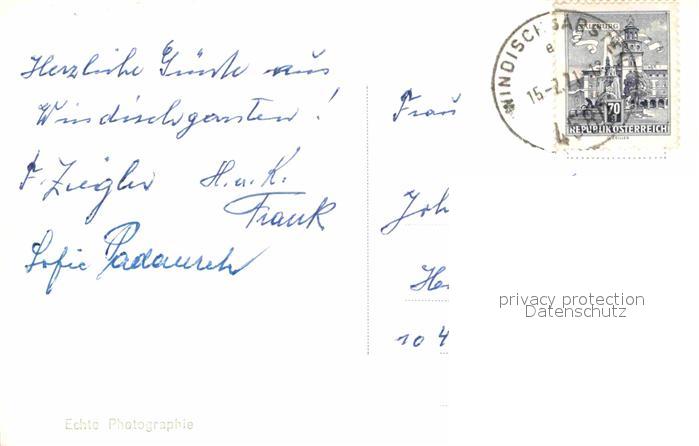 Herzliche Grüße aus
Windischgarsten!
F. Ziegler H. u. K.
Frank
Sofie
Frau
Joh
10 4
WINDISCHGARS
15-2.71
SALZBURG
70
REPUBLIK ÖSTERREICH
privacy protection
Datenschutz
Echte Photographie